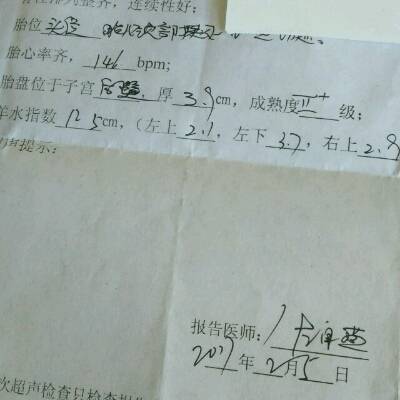 脊柱排列整齐，连续性好；
胎位 头位 胎儿颈部探及
胎心率齐，146 bpm;
胎盘位于子宫 后壁，厚 3.9cm，成熟度 II+ 级；
羊水指数 12.5cm，(左上 2.1，左下 3.7，右上 2.9
声提示：
报告医师：
2017 年 2月5 日
次超声检查只检查